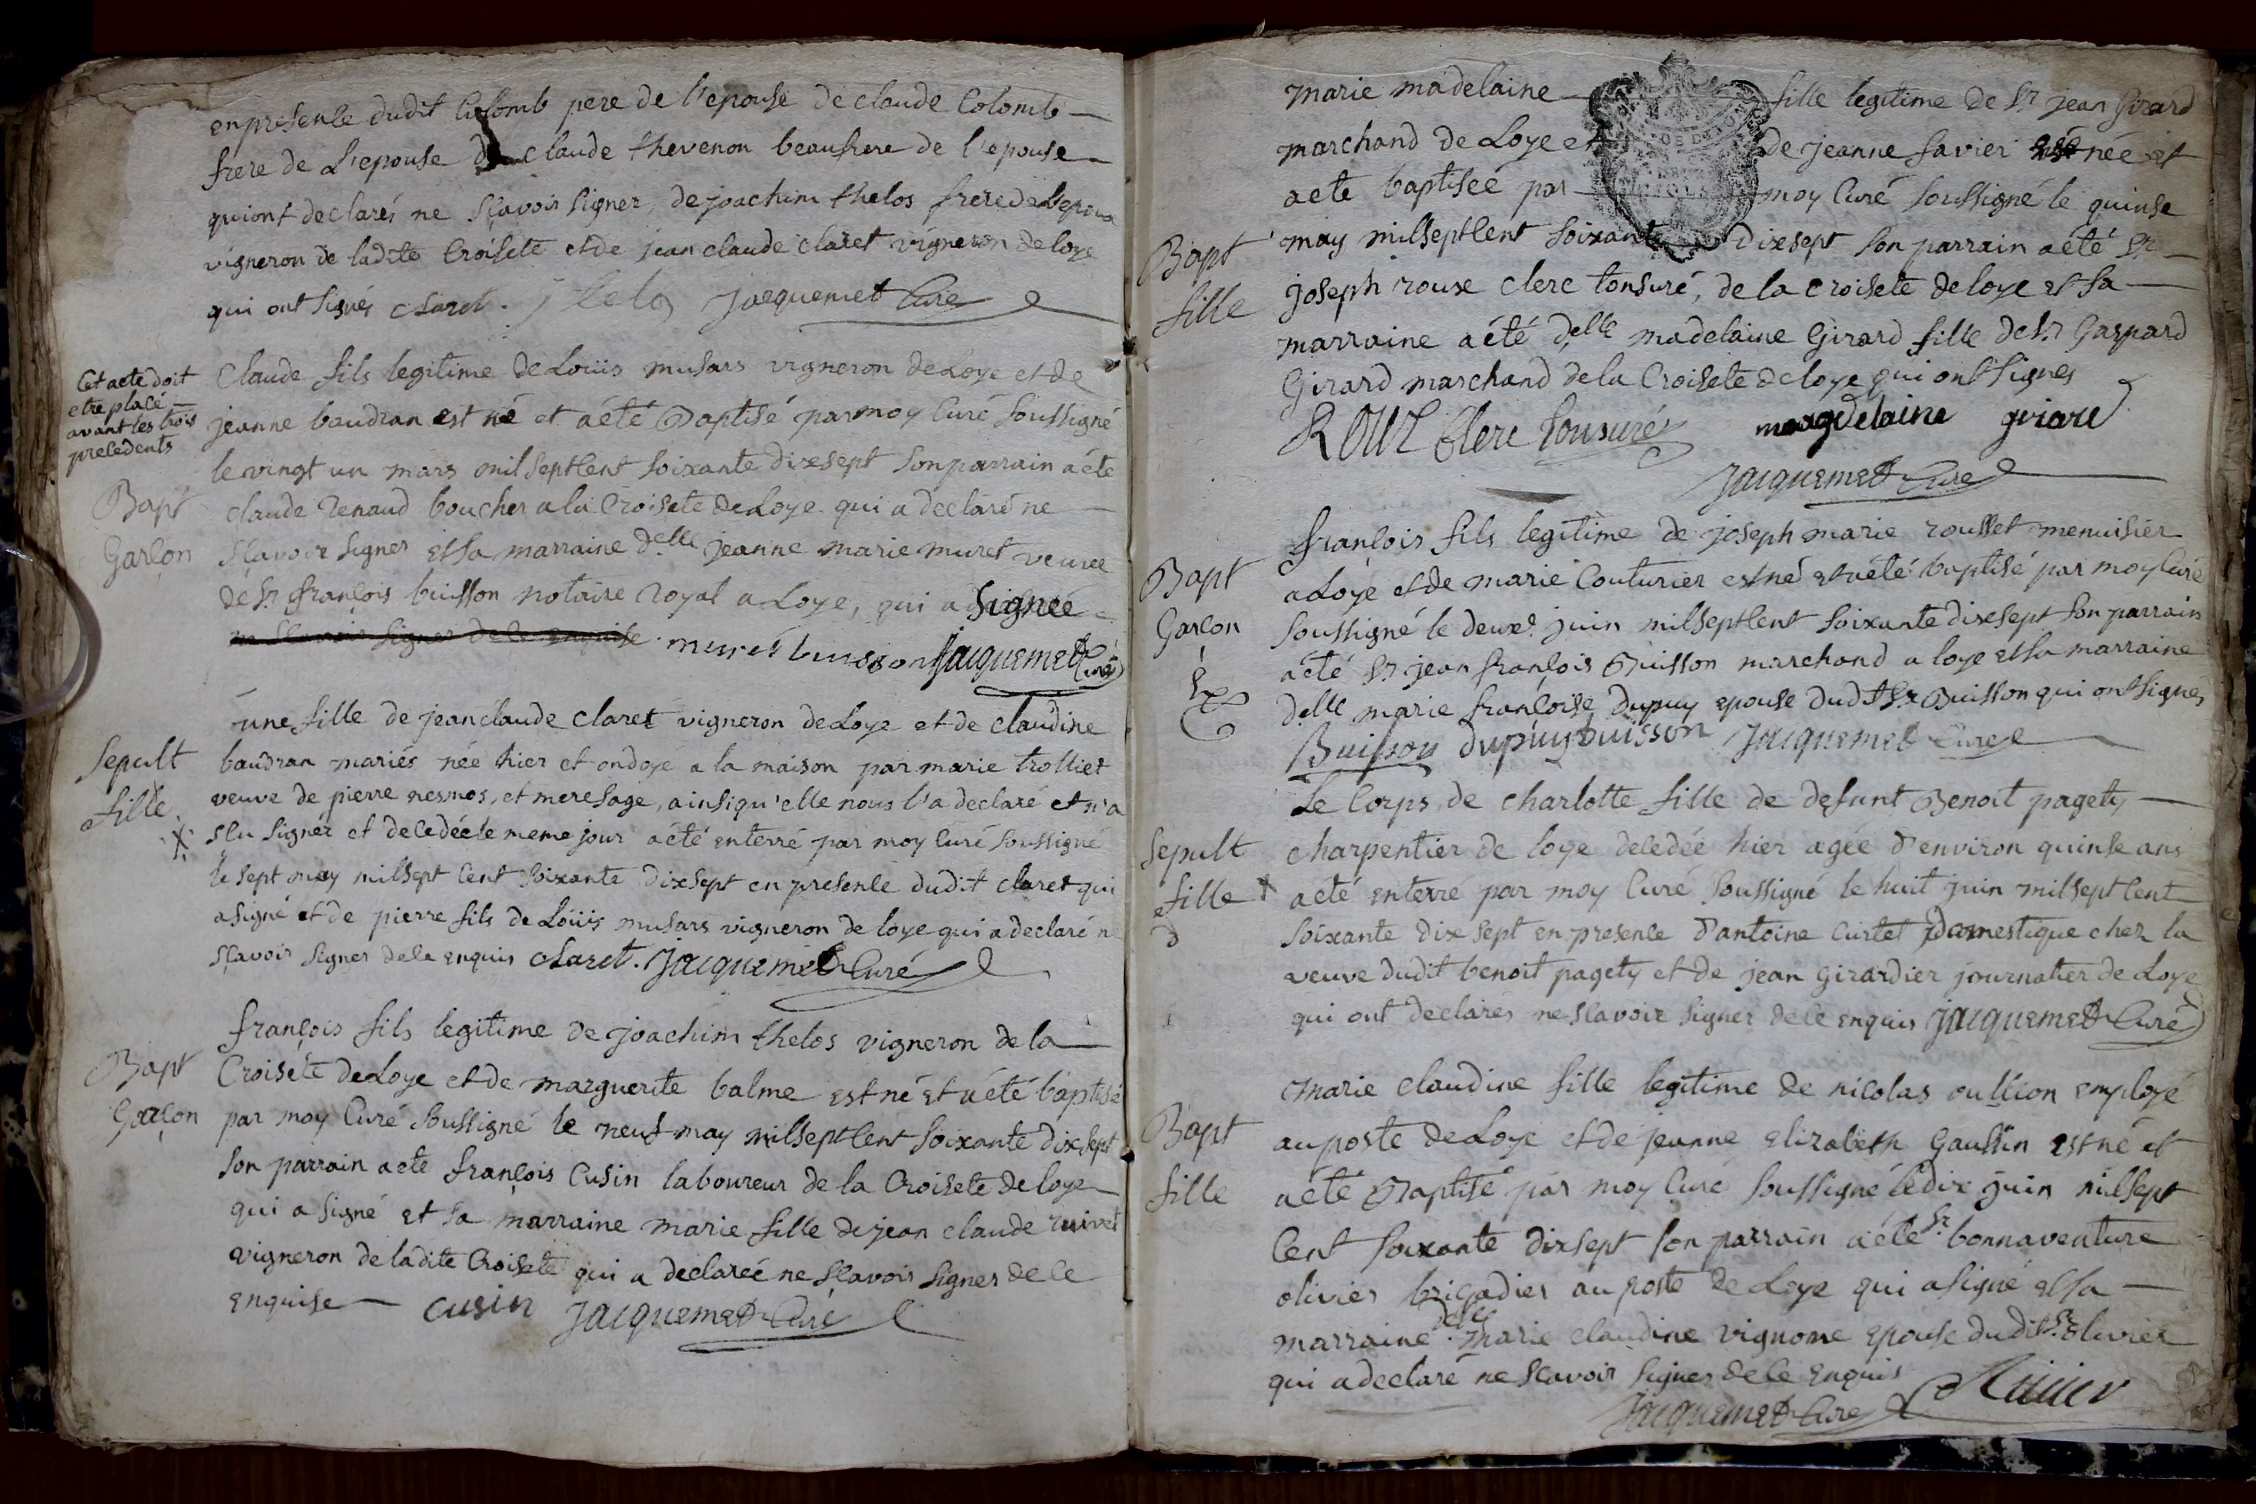 en presence dudit Colomb pere de l'epouse de claude Colomb
frere de L'epouse de claude thevenon beaufrere de l'epouse
qui ont declarés ne sçavoir signer, de joachim thelos frere de Lepoux
vigneron de ladite Croisete et de jean claude claret vigneron de loye
qui ont signés claret. j thelos jacquemet Curé
Cet acte doit
etre placé
avant les trois
precedents
Bapt
Garçon
Claude fils legitime de Loüis musars vigneron de Loye et de
jeanne baudran est né et a été Baptisé par moy Curé soussigné
le vingt un mars mil sept Cent soixante dixsept son parrain a été
claude renaud boucher a la Croisete de Loye qui a declaré ne
sçavoir signer et sa marraine delle jeanne marie muret veuve
de Sr françois buisson notaire royal a Loye, qui a signée
ne sçavoir signer de ce enquise muret buisson jacquemet Curé
Sepult
fille
une fille de jean claude claret vigneron de Loye et de claudine
baudran mariés née hier et ondoyé a la maison par marie trolliet
veuve de pierre nesmos, et mere sage, ainsi qu'elle nous l'a declaré et n'a
sçu signer et decedée le meme jour a été enterré par moy Curé soussigné
le sept may mil sept Cent soixante dixsept en presence dudit claret qui
a signé et de pierre fils de Loüis musars vigneron de loye qui a declaré ne
sçavoir signer de ce enquis claret. jacquemet Curé
Bapt
Garçon
françois fils legitime de joachim thelos vigneron de la
Croiséte de Loye et de marguerite balme est né et a été baptisé
par moy Curé soussigné le neuf may mil sept Cent soixante dix sept
son parrain a eté françois Cusin laboureur de la Croisete de loye
qui a signé et sa marraine marie fille de jean claude ruivet
vigneron de ladite Croisete qui a declareé ne sçavoir signer de ce
enquise cusin jacquemet Curé
Bapt
fille
marie madelaine fille legitime de Sr jean Girard
marchand de Loye et de jeanne favier née et
a eté baptiseé par moy Curé soussigné le quinse
may mil sept Cent soixante dixsept son parrain a été Sr
joseph roux clerc tonsuré, de la croisete de loye et sa
marraine a été delle madelaine Girard fille de Sr Gaspard
Girard marchand de la Croisete de loye qui ont signes
ROUX Clerc tonsuré magdelaine griard
jacquemet Curé
Bapt
Garçon
françois fils legitime de joseph marie rousset menuisier
a Loye et de marie Couturier est né et a été baptisé par moy Curé
soussigné le deuxe juin mil sept Cent soixante dixsept son parrain
a été Sr jean françois Buisson marchand a loye et sa marraine
delle marie françoise dupuy epouse dudt Sr Buisson qui ont signés
Buisson dupuy buisson jacquemet Curé
Sepult
fille
Le Corps de charlotte fille de defunt Benoit pagety
charpentier de loye decedéé hier agée d'environ quinse ans
a été enterre par moy Curé soussigné le huit juin mil sept Cent
soixante dix sept en presence d'antoine curtet domestique chez la
veuve dudit benoit pagety et de jean girardier journalier de Loye
qui ont declarés ne sçavoir signer de ce enquis jacquemet Curé
Bapt
fille
Marie claudine fille legitime de nicolas oullion employé
au poste de Loye et de jeanne elizabeth Gaussin est né et
a été Baptisé par moy Curé soussigné le dix juin mil sept
Cent soixante dixsept son parrain a été Sr bonnaventure
olivier brigadier au poste de Loye qui a signé et sa
marraine delle marie claudine vignome epouse dudit Sr olivier
qui a declaré ne sçavoir signer de ce enquis
jacquemet Curé olivier